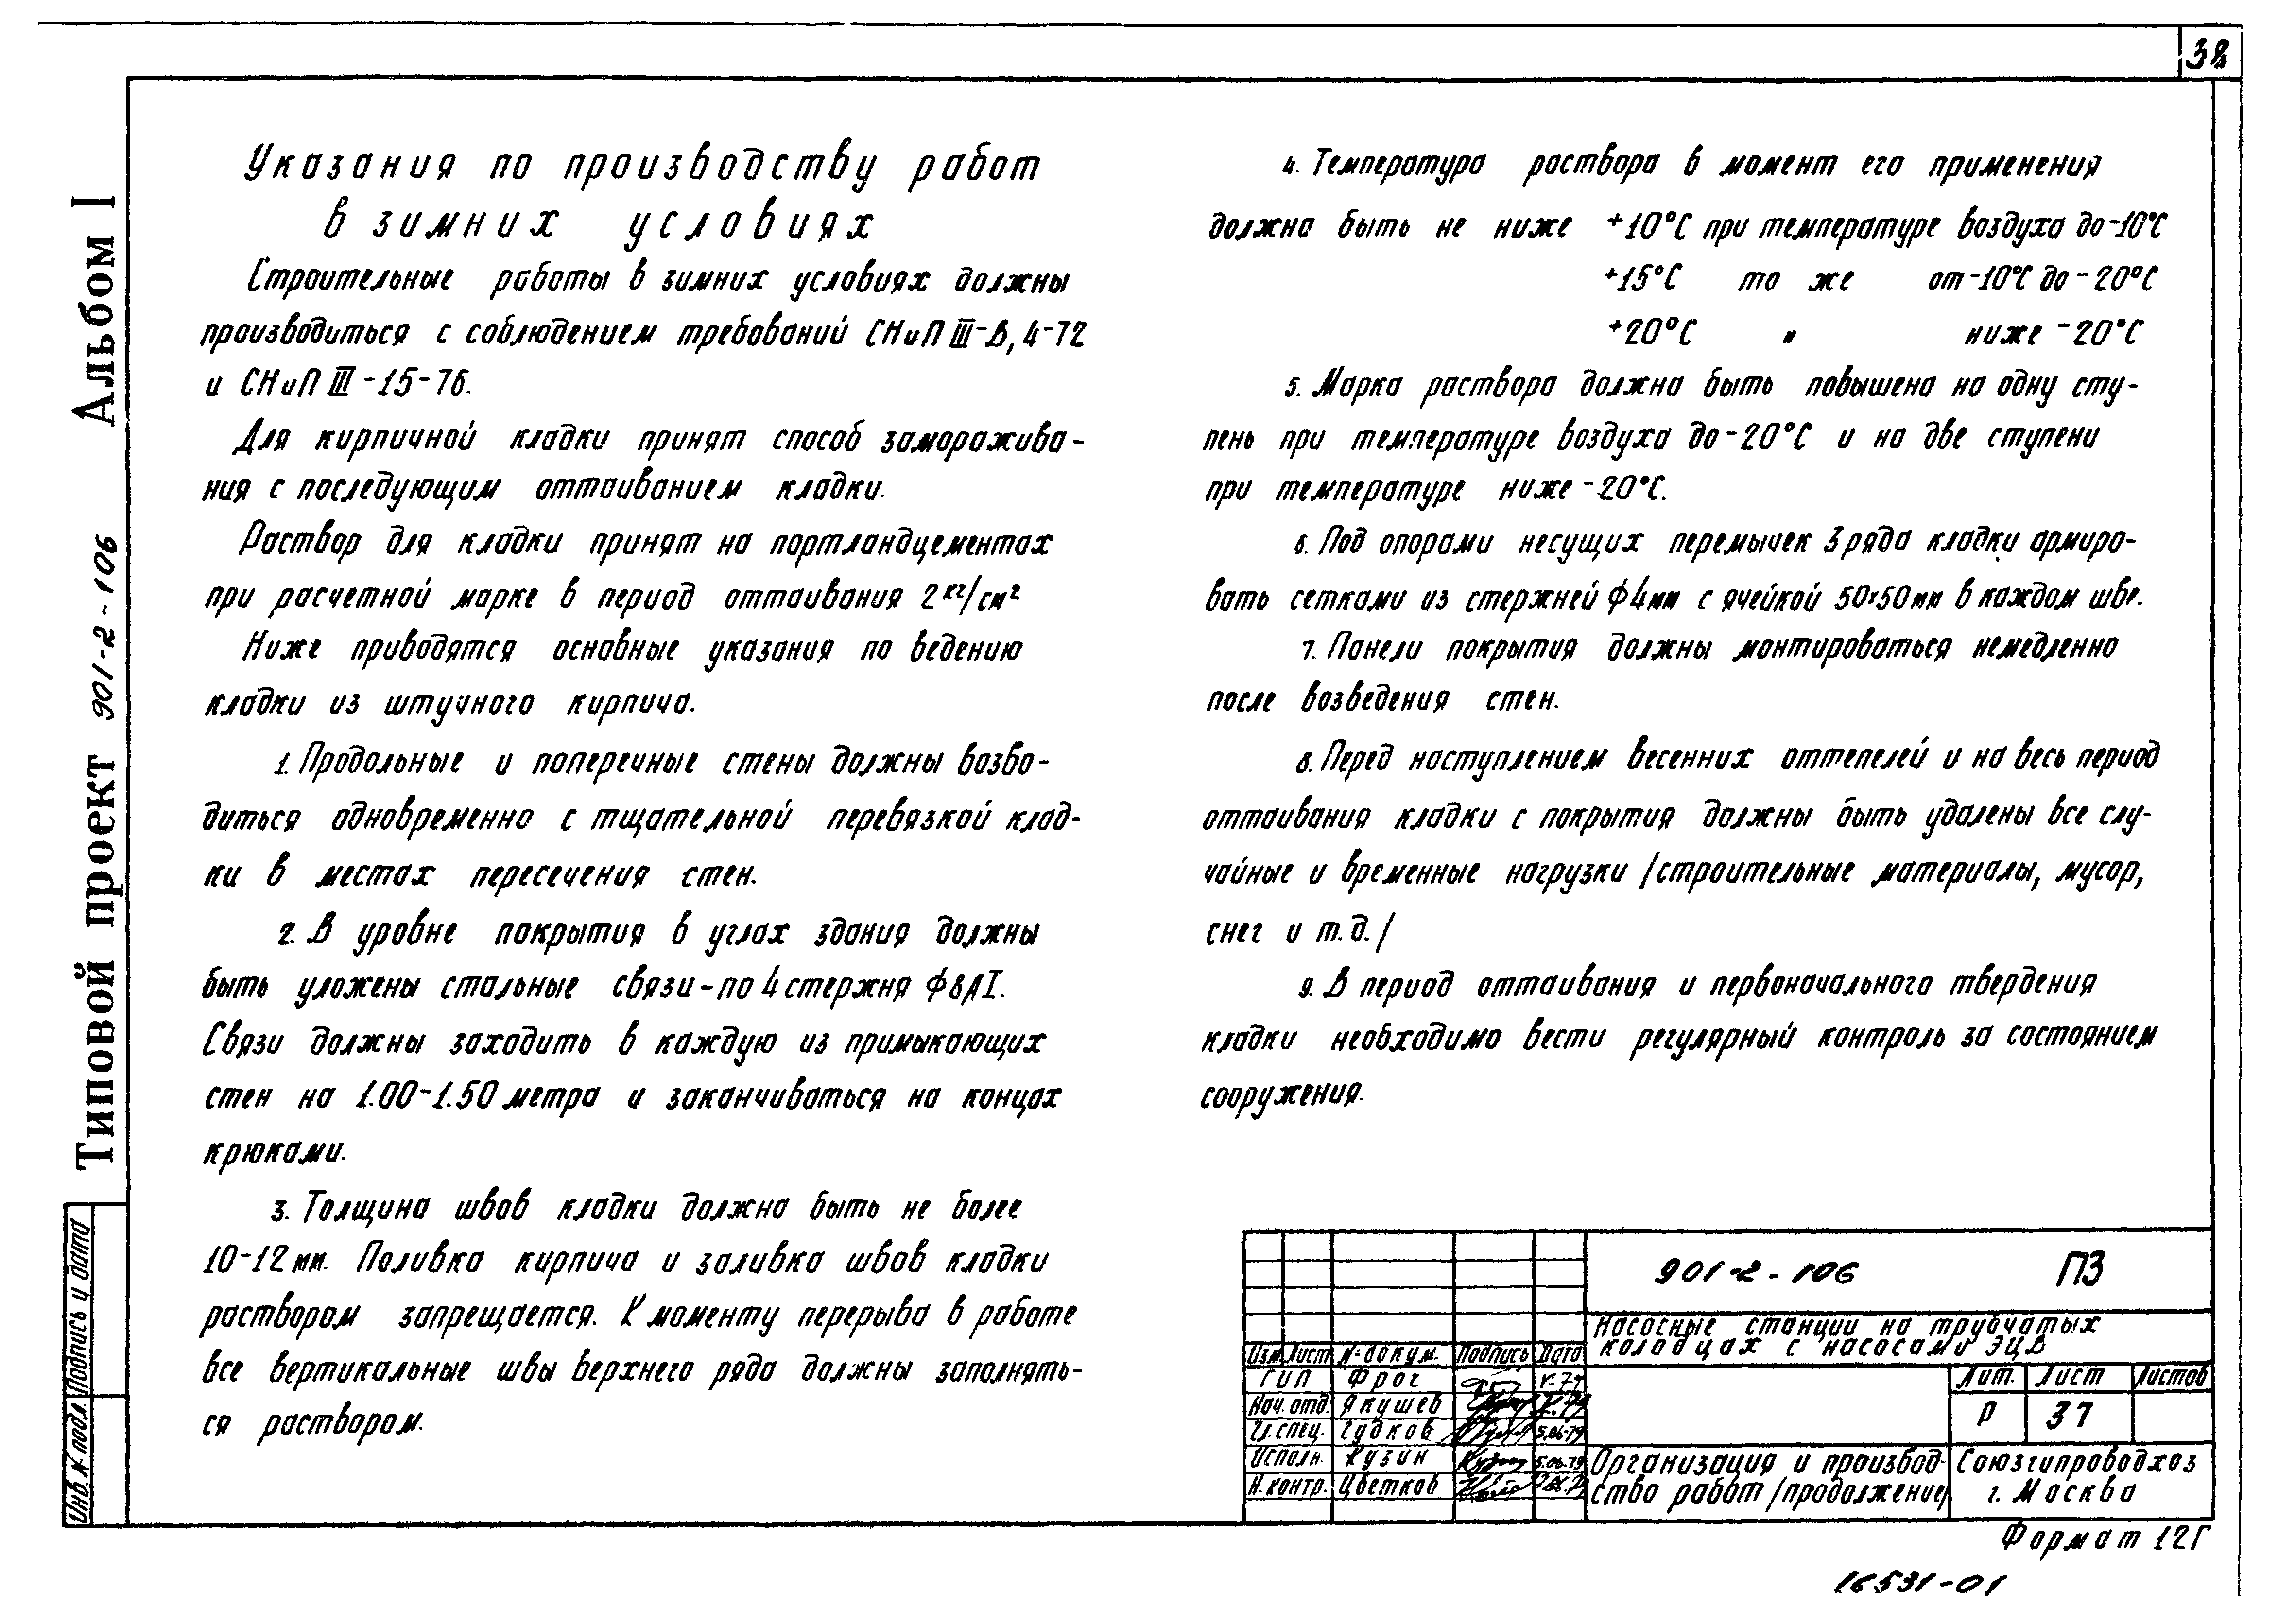 38
Альбом I
Типовой проект 901-2-106
Подпись и дата
Инв.№ подл.
Указания по производству работ
в зимних условиях
Строительные работы в зимних условиях должны
производиться с соблюдением требований СНиП III-В,4-72
и СНиП III-15-76.
Для кирпичной кладки принят способ заморажива-
ния с последующим оттаиванием кладки.
Раствор для кладки принят на портландцементах
при расчетной марке в период оттаивания 2 кг/см²
Ниже приводятся основные указания по ведению
кладки из штучного кирпича.
1. Продольные и поперечные стены должны возво-
диться одновременно с тщательной перевязкой клад-
ки в местах пересечения стен.
2. В уровне покрытия в углах здания должны
быть уложены стальные связи-по 4 стержня ф8АI.
Связи должны заходить в каждую из примыкающих
стен на 1.00-1.50 метра и заканчиваться на концах
крюками.
3. Толщина швов кладки должна быть не более
10-12мм. Поливка кирпича и заливка швов кладки
раствором запрещается. К моменту перерыва в работе
все вертикальные швы верхнего ряда должны заполнять-
ся раствором.
4. Температура раствора в момент его применения
должна быть не ниже +10°С при температуре воздуха до-10°С
+15°С то же от-10°С до-20°С
+20°С " ниже -20°С
5. Марка раствора должна быть повышена на одну сту-
пень при температуре воздуха до-20°С и на две ступени
при температуре ниже-20°С.
6. Под опорами несущих перемычек 3 ряда кладки армиро-
вать сетками из стержней ф4мм с ячейкой 50х50мм в каждом шве.
7. Панели покрытия должны монтироваться немедленно
после возведения стен.
8. Перед наступлением весенних оттепелей и на весь период
оттаивания кладки с покрытия должны быть удалены все слу-
чайные и временные нагрузки /строительные материалы, мусор,
снег и т.д./
9. В период оттаивания и первоначального твердения
кладки необходимо вести регулярный контроль за состоянием
сооружения.
901-2-106 ПЗ
Насосные станции на трубчатых
колодцах с насосами ЭЦВ
Изм. Лист №докум. Подпись Дата
ГИП Фрог
Нач. отд. Якушев
Гл.спец. Гудков 5.06-79
Исполн. Кузин 5.06.79
Н.контр. Цветков
Лит. Лист Листов
Р 37
Организация и производ-
ство работ /продолжение/
Союзгипроводхоз
г. Москва
Формат 12Г
16531-01